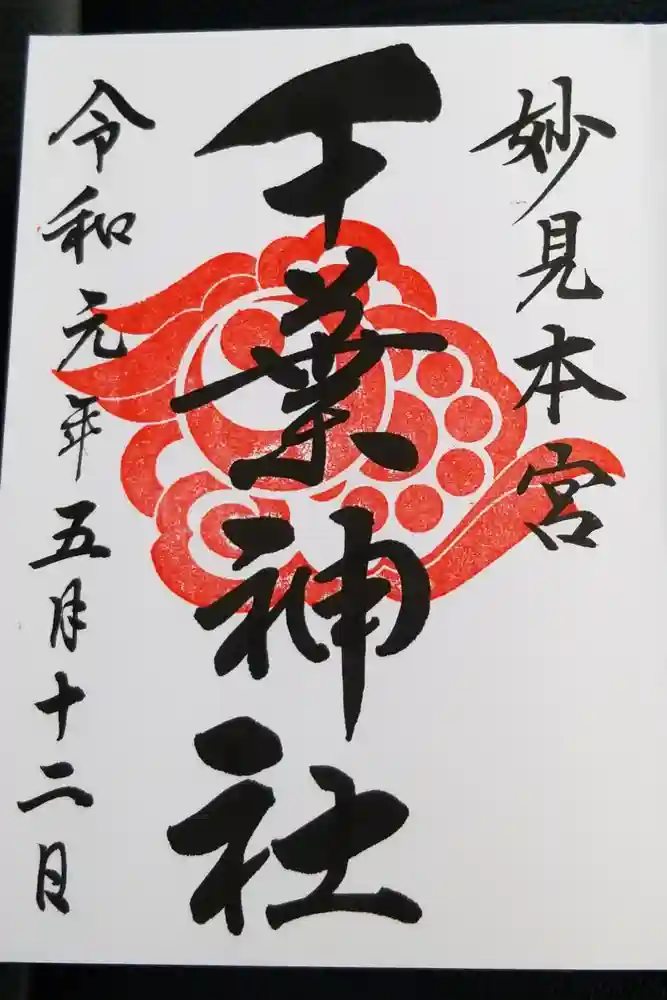 妙見本宮
千葉神社
令和元年五月十二日